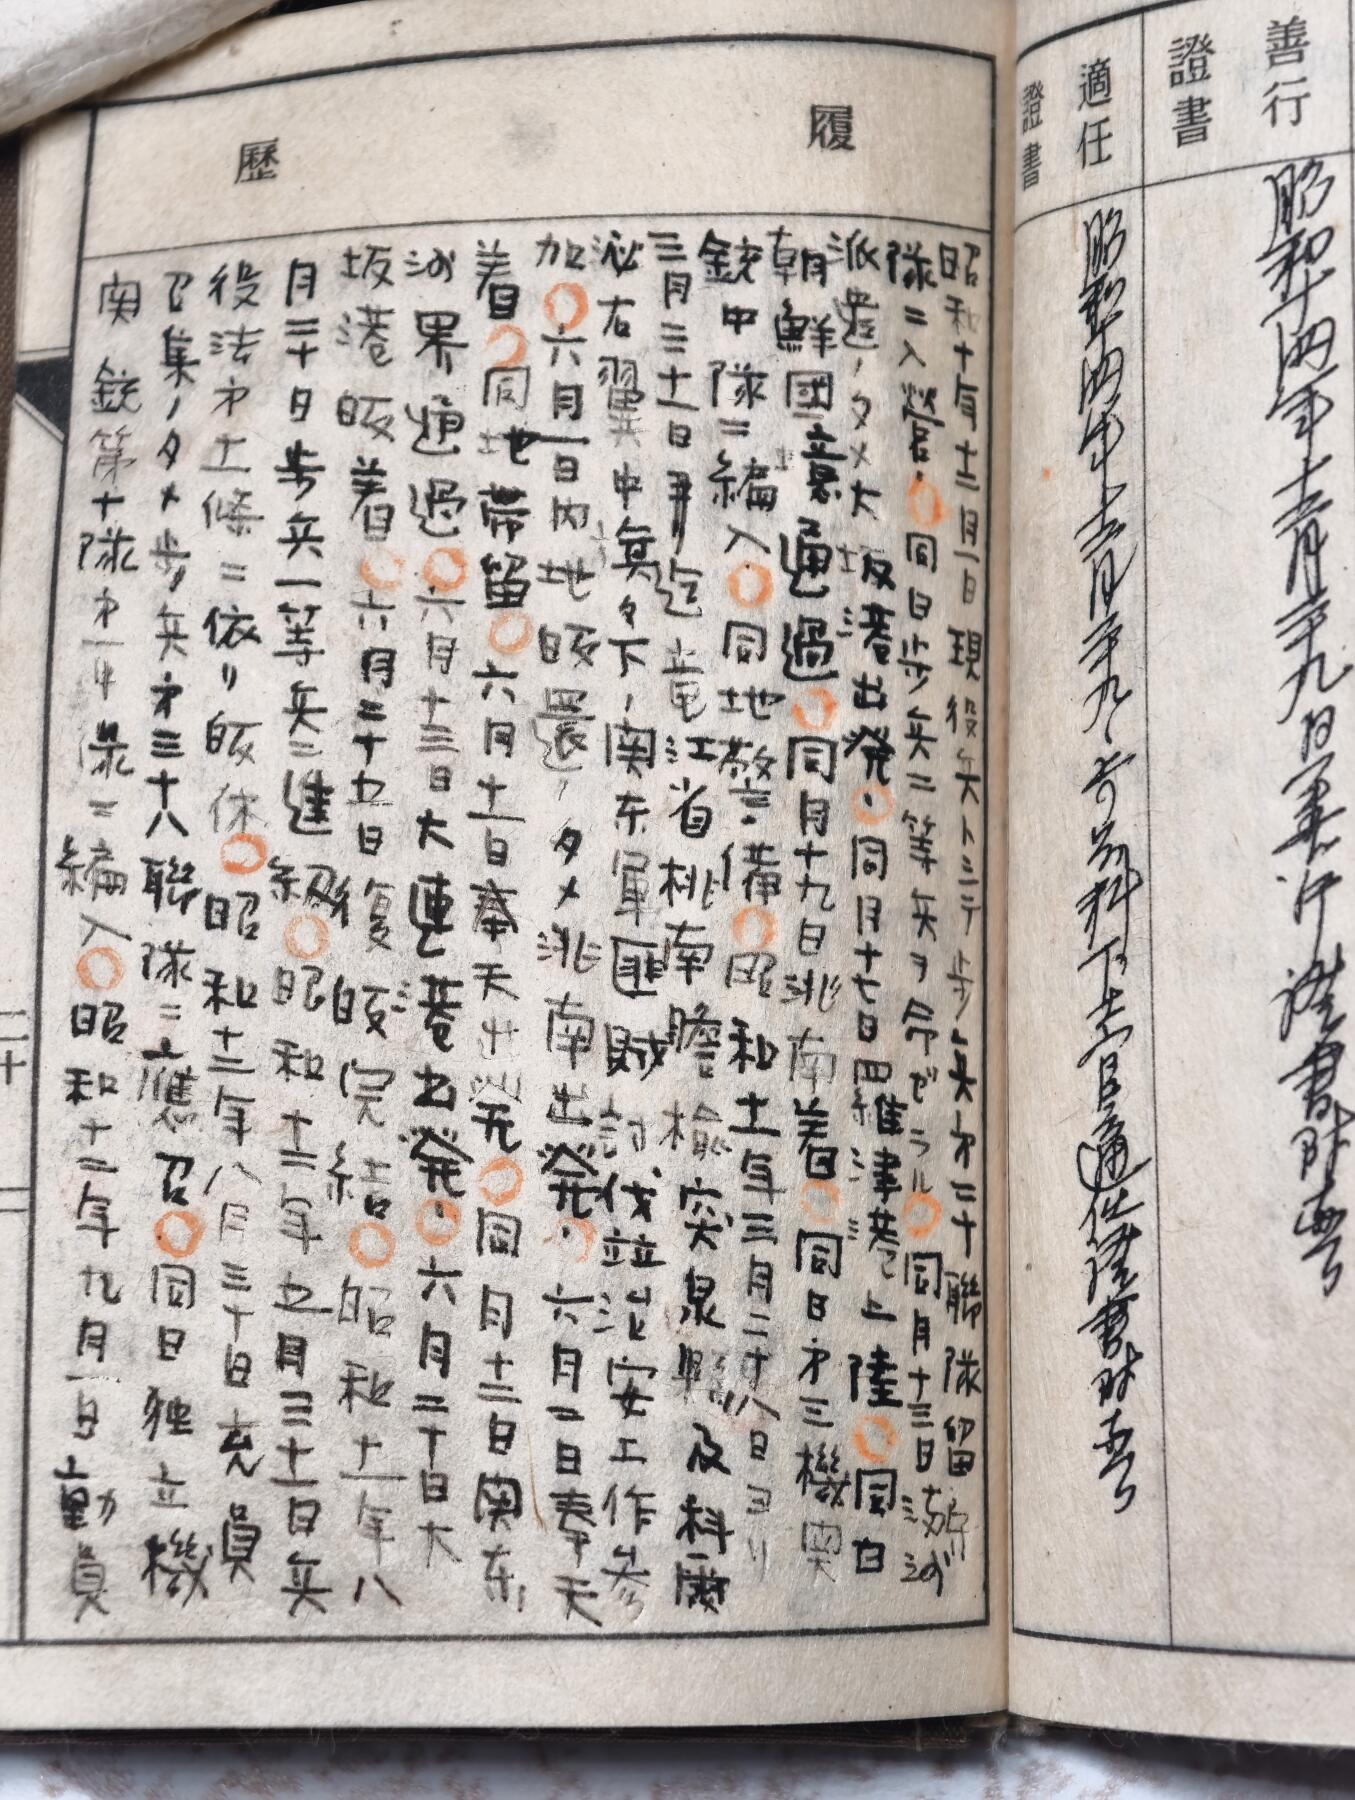 善行
證書
昭和十四年十二月二十九日善行證書附與ス
適任
證書
昭和十四年十二月二十九日 下士官適任證書附與ス
履歷
昭和十年十二月一日現役兵トシテ歩兵才三十聯隊留
隊ニ入營・同日歩兵二等兵ヲ命ゼラル同月十三日満洲
派遣ノタメ大坂港出発・同月十七日羅津港上陸同日
朝鮮國境通過同月十九日洮南着同日才三機関
銃中隊ニ編入同地警備昭和十一年三月二十八日ヨリ
三月三十一日迄龍江省桃南瞻榆突泉縣及科爾
沁右翼中旗ノ関东軍匪賊討伐並治安工作参
加六月一日内地皈還ノタメ洮南出発・六月二日奉天
着同地帯留六月十一日奉天出発同月十二日関东
洲界通過六月十三日大連港出発・六月二十日大
坂港皈着六月二十九日復皈完結昭和十一年八
月二十日歩兵一等兵ニ進級昭和十二年五月三十一日兵
役法才十條ニ依リ皈休昭和十二年八月三十日充員
召集ノタメ歩兵才三十八聯隊ニ應召同日独立機
関銃第十隊才一中隊ニ編入昭和十二年九月一日動員
二十